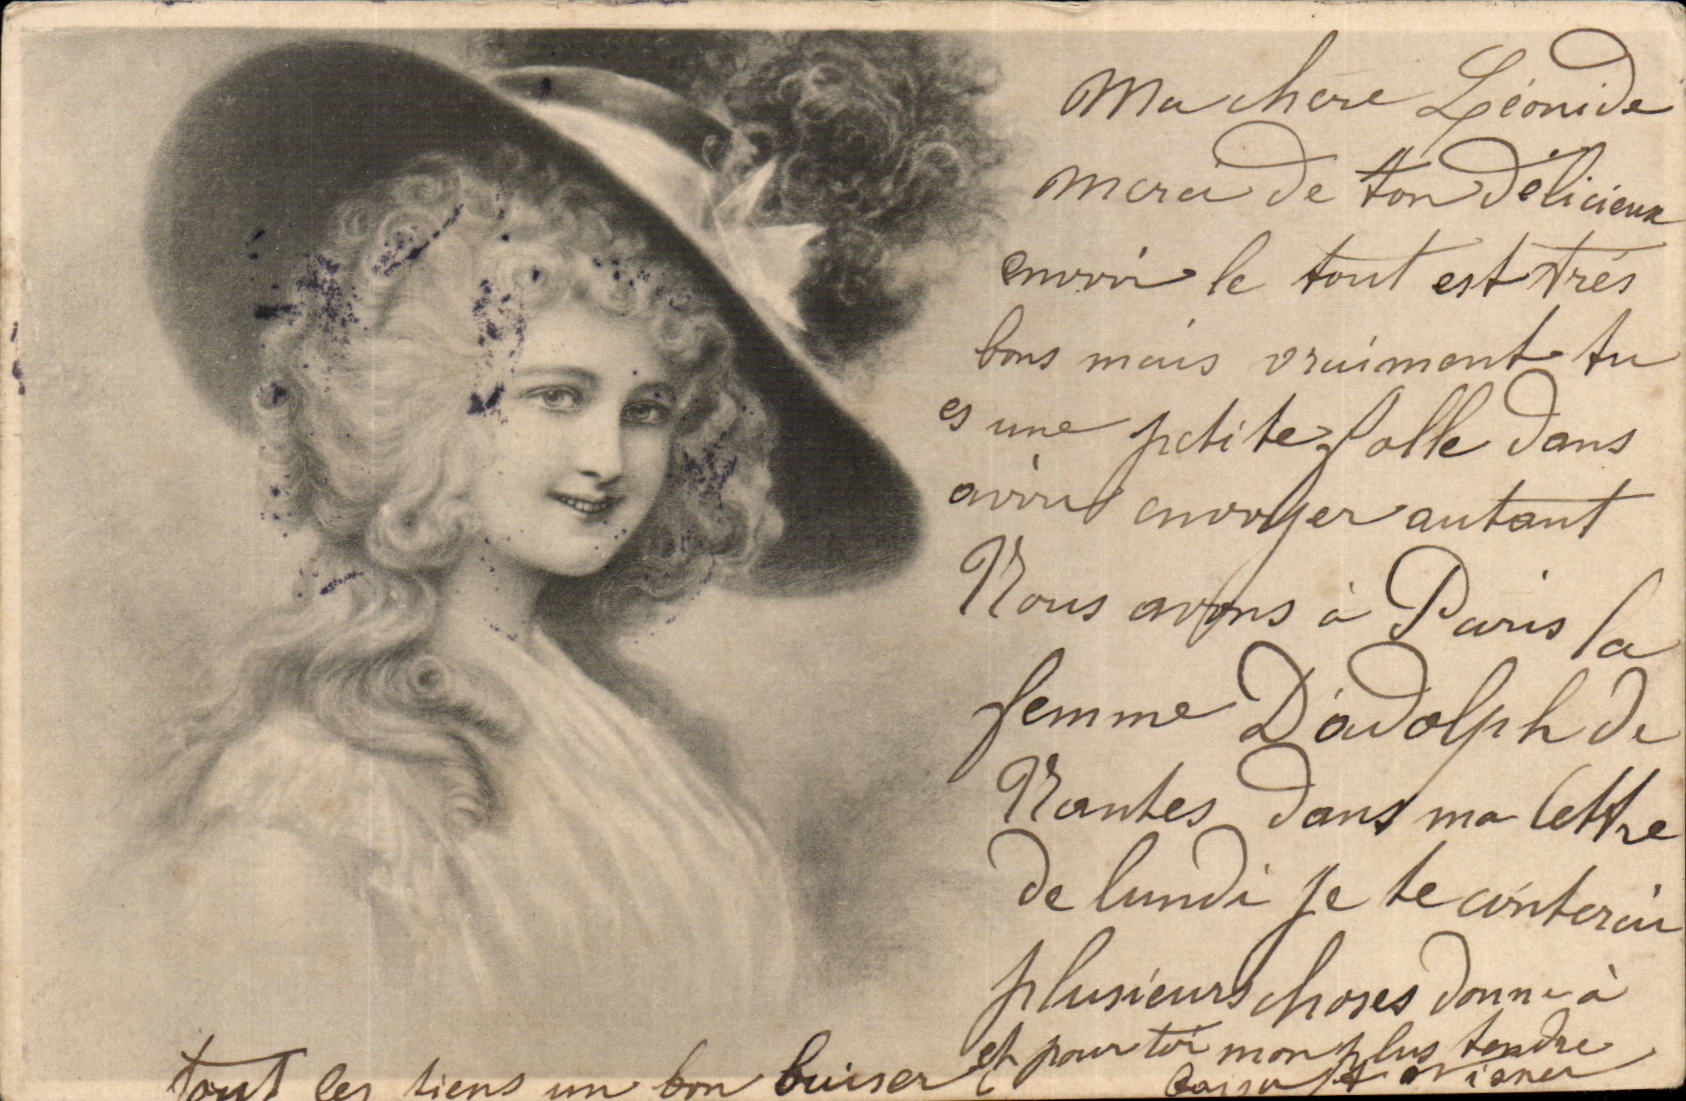 Ma chère Léonide
merci de ton délicieux
envoi le tout est très
bons mais vraiment tu
es une petite folle dans
avoir envoyer autant
Nous avons à Paris la
femme D'adolph de
Nantes dans ma lettre
de lundi je te conterai
plusieurs choses donne à
tout les tiens un bon baiser et pour toi mon plus tendre